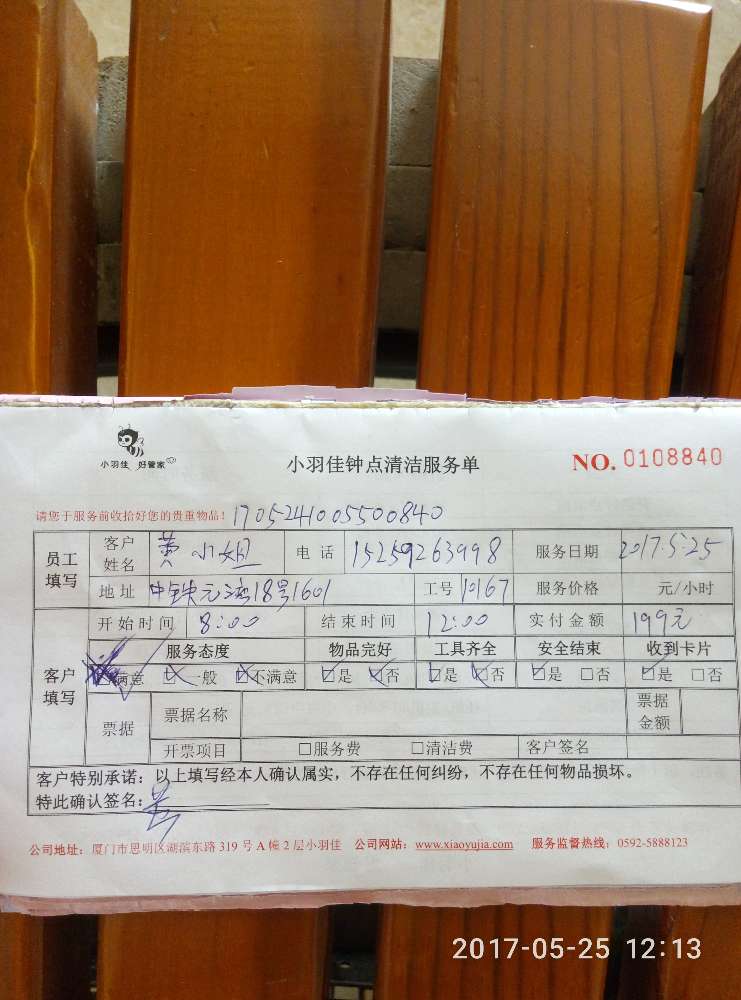 小羽佳 好管家
小羽佳钟点清洁服务单
NO. 0108840
请您于服务前收拾好您的贵重物品! 1705241005500840
员工填写 客户姓名 黄小姐 电话 15259263998 服务日期 2017.5.25
地址 中铁元湾18号1601 工号 10167 服务价格 元/小时
客户填写 开始时间 8:00 结束时间 12:00 实付金额 199元
服务态度 物品完好 工具齐全 安全结束 收到卡片
满意 一般 不满意 是 否 是 否 是 □否 是 □否
票据 票据名称 票据金额
开票项目 □服务费 □清洁费 客户签名
客户特别承诺: 以上填写经本人确认属实,不存在任何纠纷,不存在任何物品损坏。
特此确认签名:
公司地址: 厦门市思明区湖滨东路 319 号 A 幢 2 层小羽佳 公司网站: www.xiaoyujia.com 服务监督热线: 0592-5888123
2017-05-25 12:13